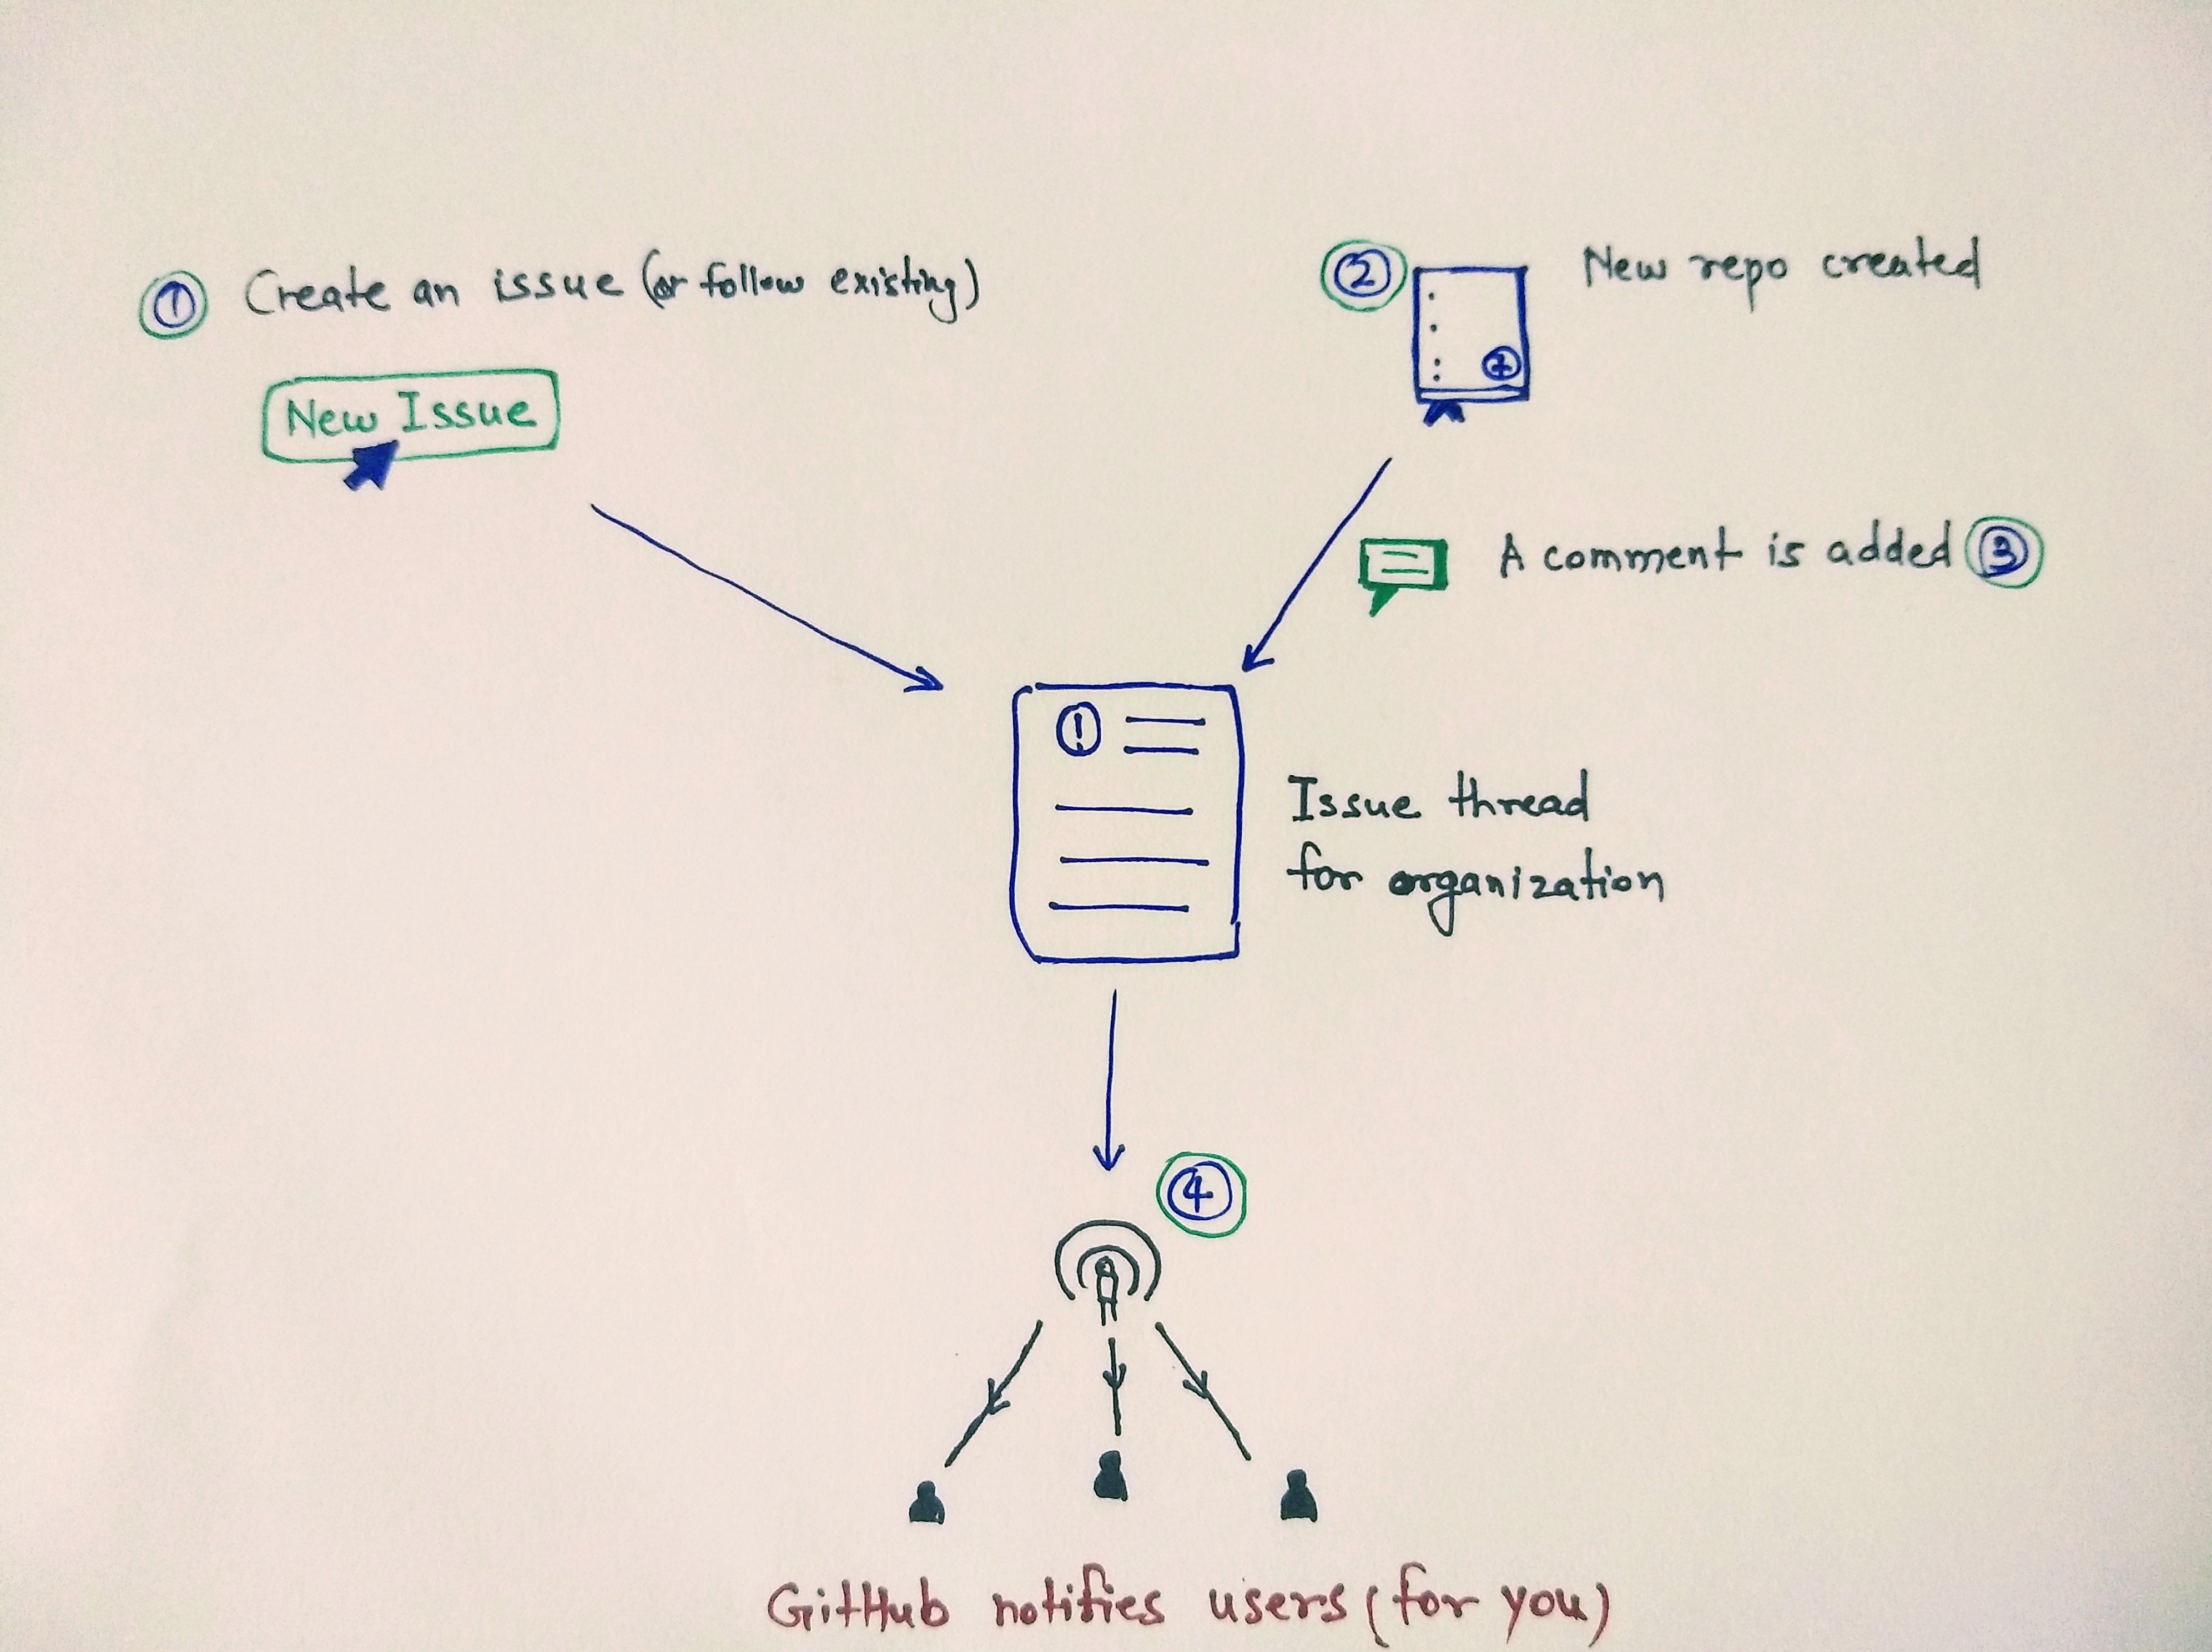 ① Create an issue (or follow existing)
New Issue
② New repo created
A comment is added ③
!
Issue thread
for organization
④
GitHub notifies users (for you)